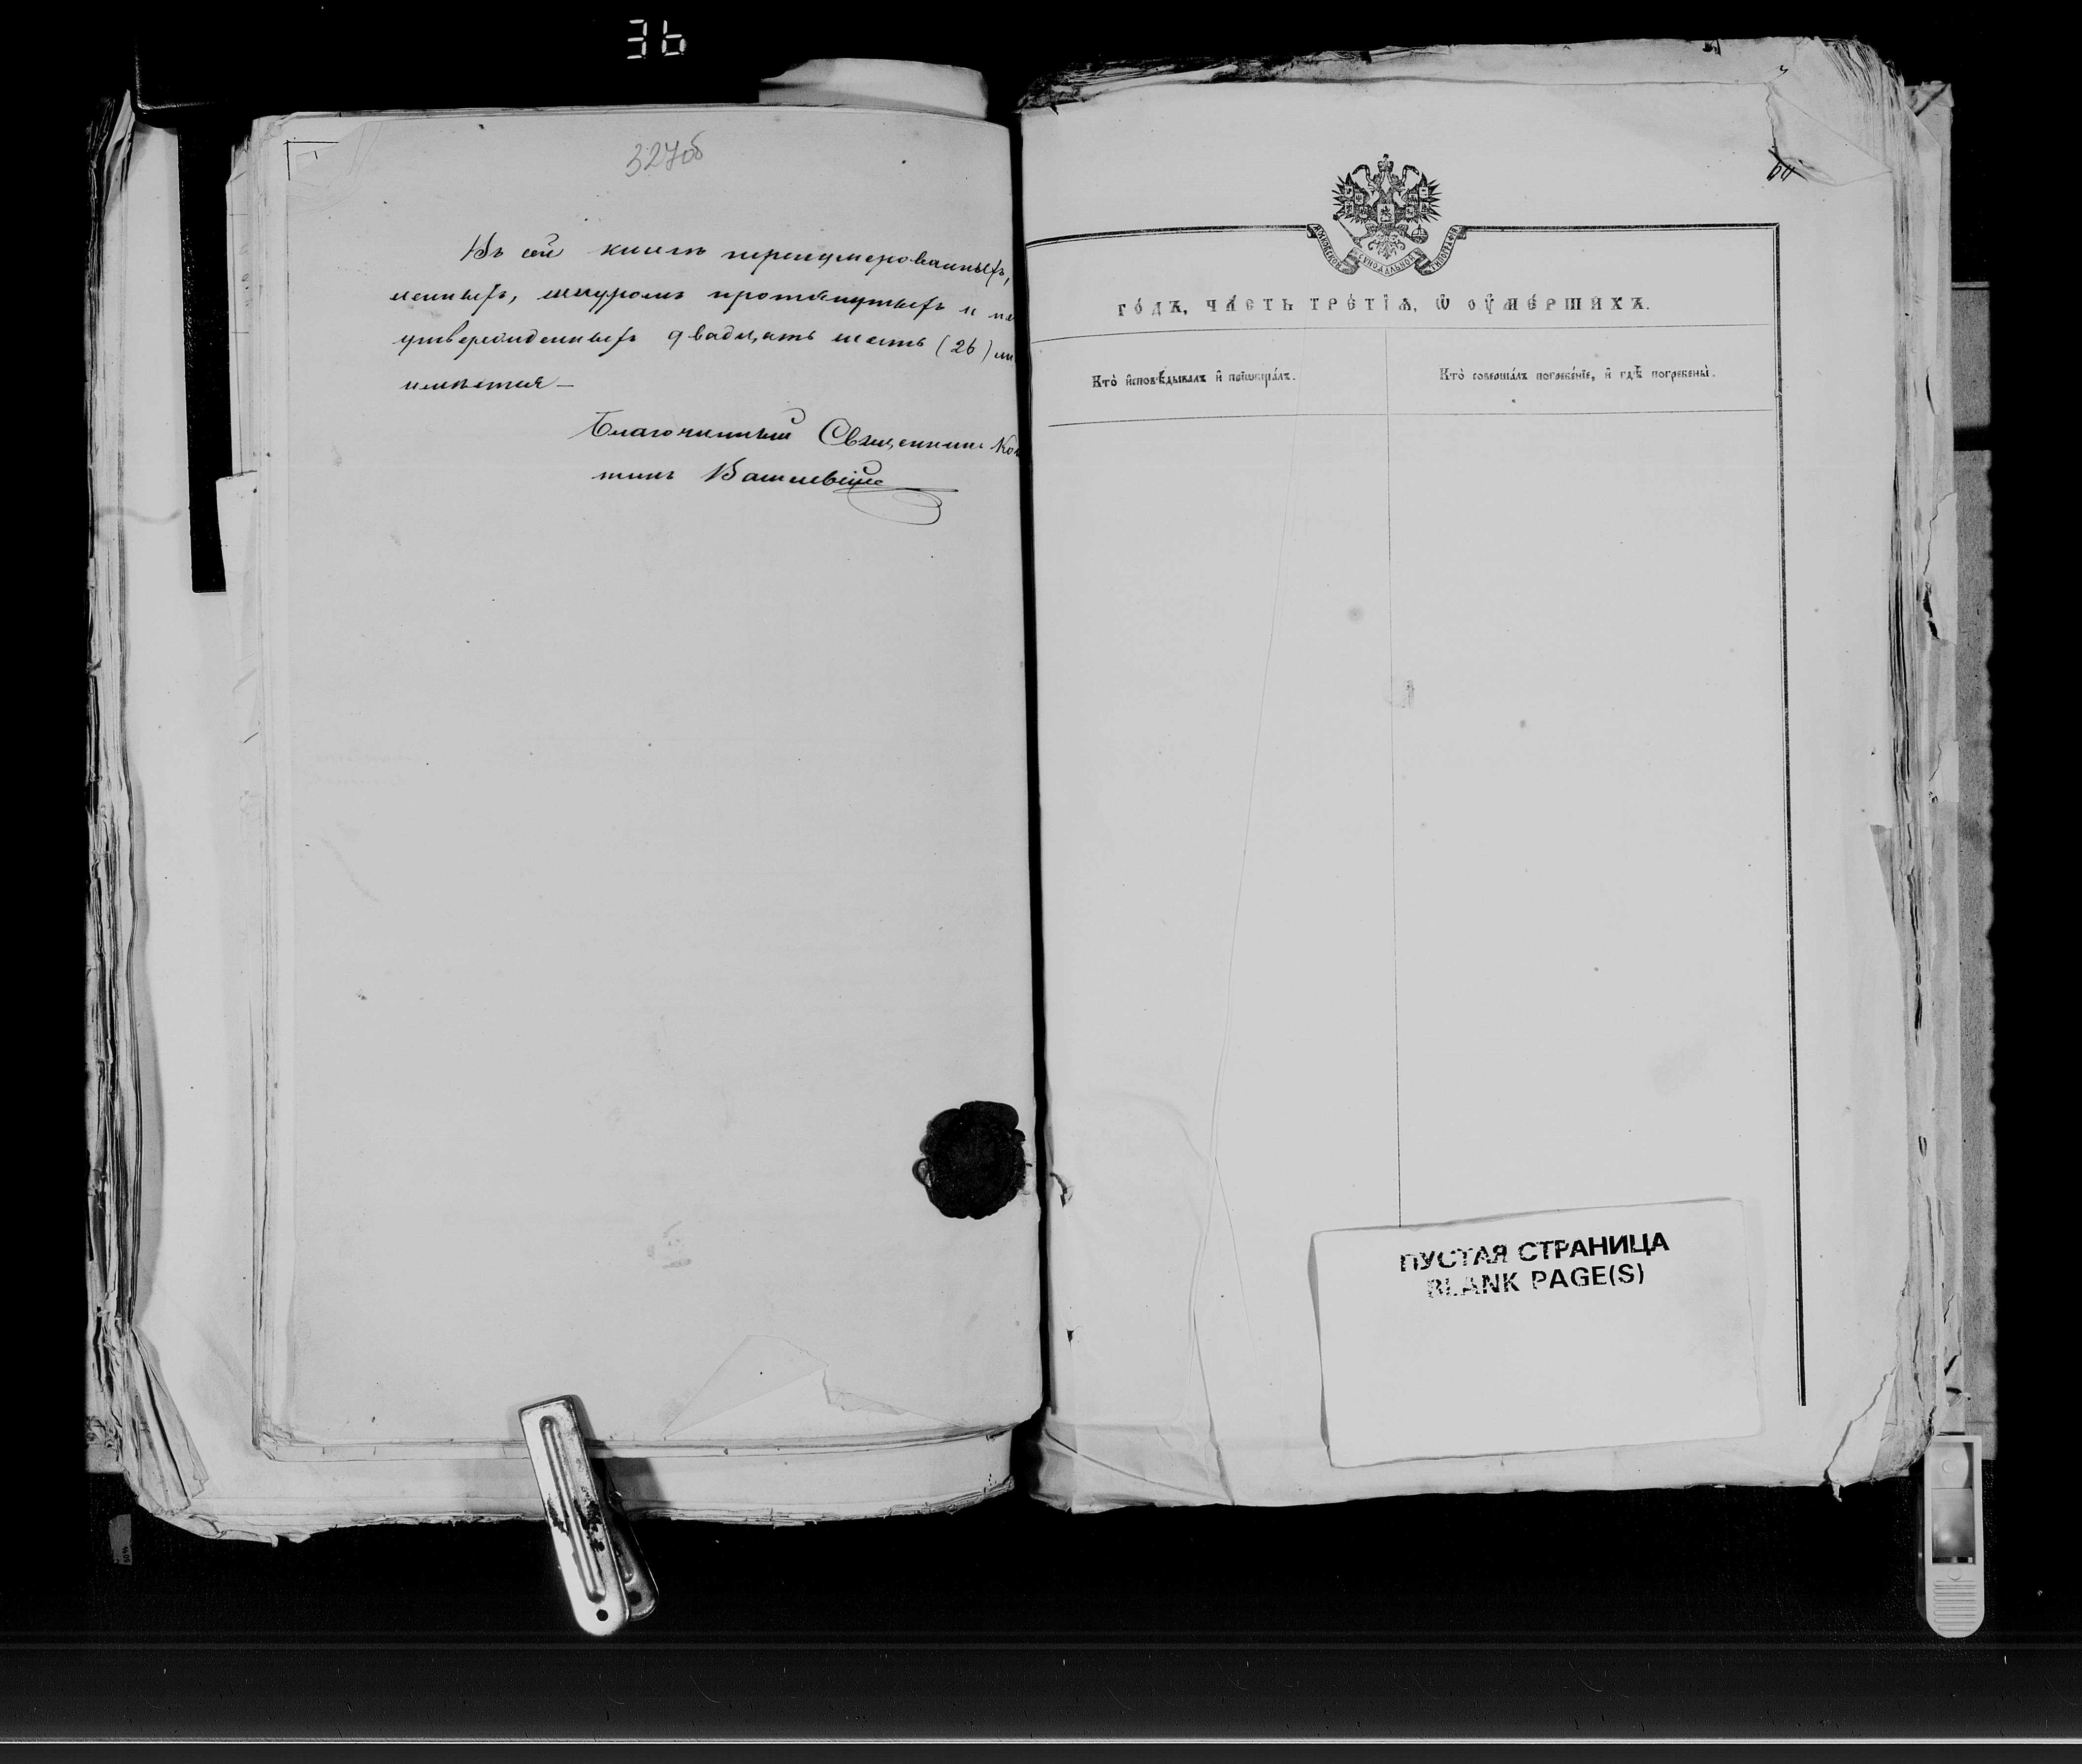 36
327об
Въ сей книгѣ перенумерованныхъ,
ленныхъ, шнуромъ протянутыхъ и пе
утвержденныхъ двадцать шесть (26) ли
имѣется —
Благочинный Священникъ Кон
тинъ Василевскій
МОСКОВСКОЙ СѴНОДАЛЬНОЙ ТИПОГРАФІИ
го́дъ, ча́сть тре́тїѧ, ѡ҆ ᲂу҆ме́ршихъ.
Кто̀ и҆сповѣ́дывалъ и҆ прїѡбща́лъ.
Кто̀ соверша́лъ погребе́нїе, и҆ гдѣ̀ погребены̀.
ПУСТАЯ СТРАНИЦА
BLANK PAGE(S)